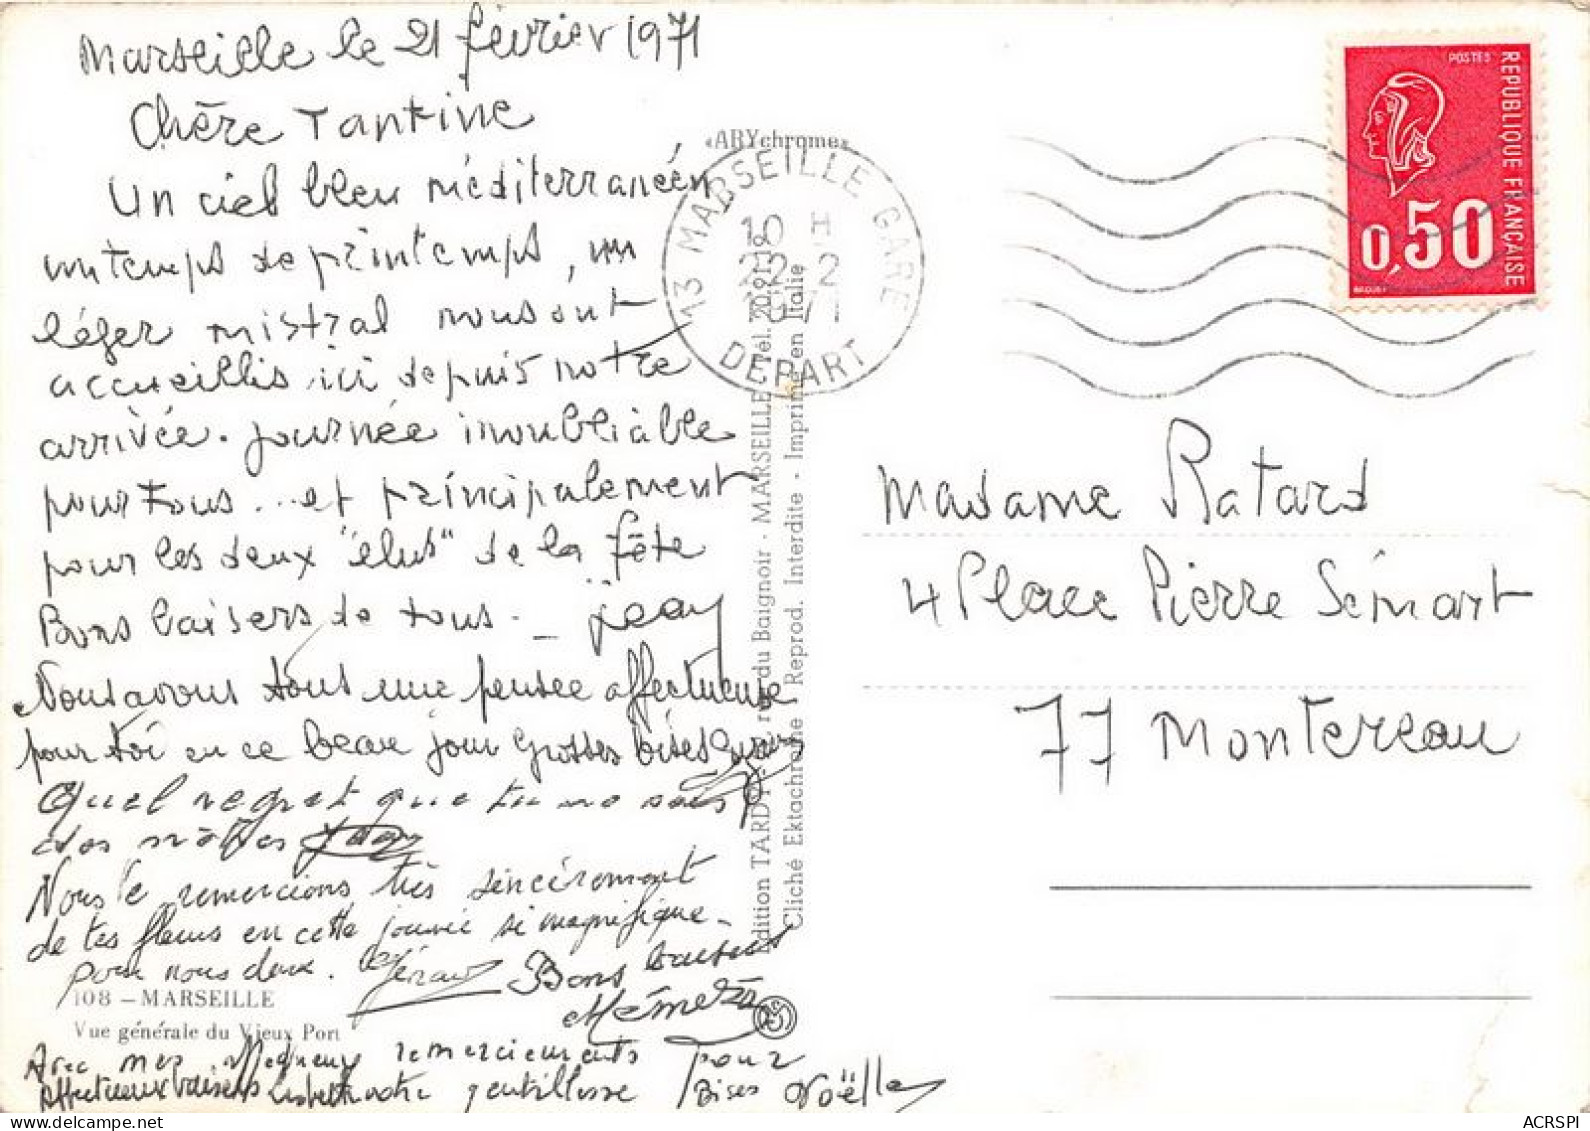 Marseille le 21 février 1971
Chère Tantine
Un ciel bleu méditerranéen
un temps de printemps, un
léger mistral nous ont
accueillis ici depuis notre
arrivée. journée inoubliable
pour tous... et principalement
pour les deux "élus" de la fête
Bons baisers de tous -
Nous avons tous une pensée affectueuse
pour toi en ce beau jour Grosses bises
Quel regret que tu ne sois
des nôtres
Nous te remercions très sincèrement
de tes fleurs en cette journée si magnifique
pour nous deux. Gérard Bons baisers
Mémé
108 - MARSEILLE
Vue générale du Vieux Port
Avec mes remerciements pour
Affectueux baisers votre gentillesse Bises Noëlle
«ARYchrome»
Edition TARDY rue du Baignoir - MARSEILLE Tél. 20.91.
Cliché Ektachrome Reprod. Interdite - Imprimé en Italie
13 MARSEILLE GARE
10 H
22-2
1971
DEPART
POSTES
REPUBLIQUE FRANÇAISE
0,50
Madame Ratard
4 Place Pierre Sémart
77 Montereau
ACRSPI